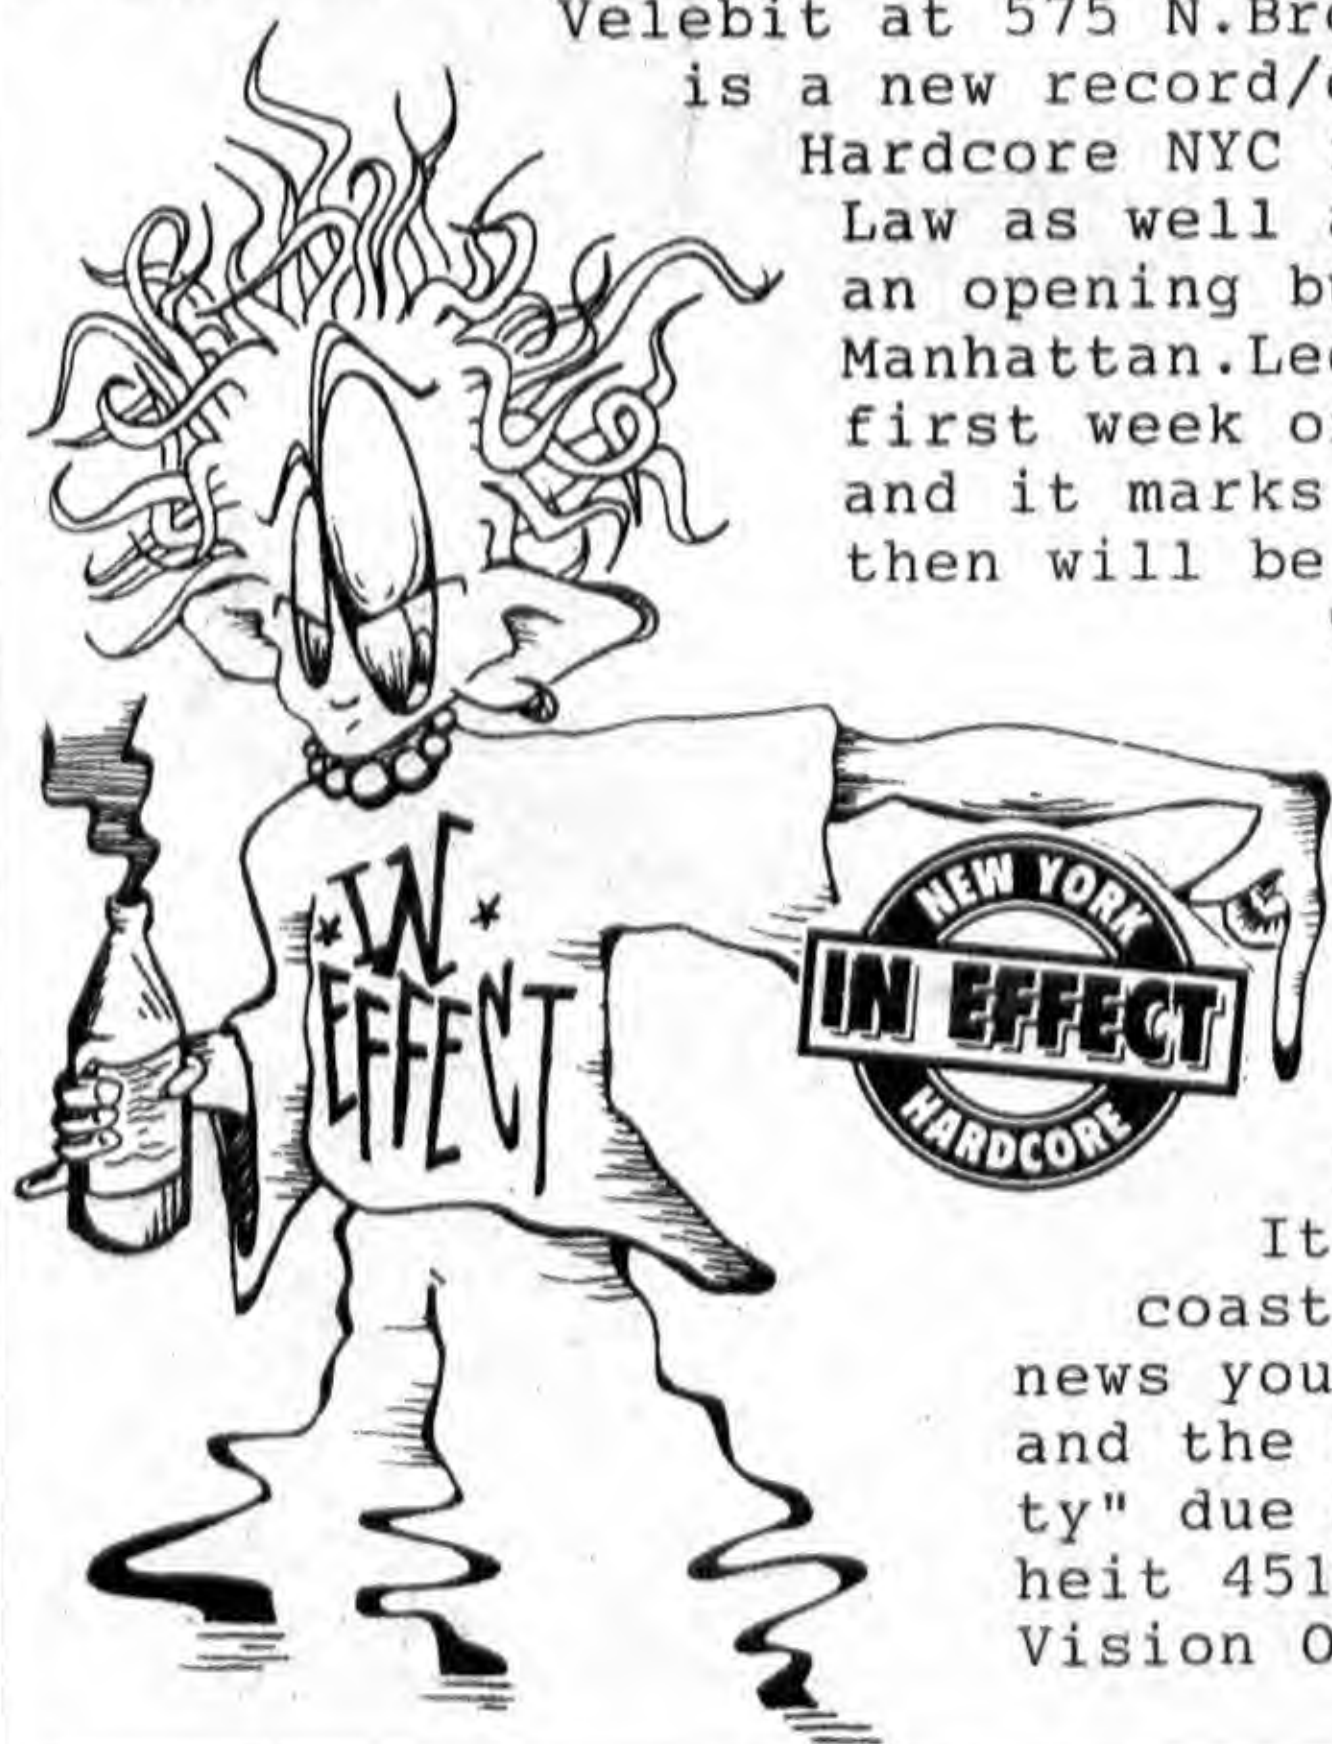 Velebit at 575 N.Br
is a new record/
Hardcore NYC
Law as well
an opening b
Manhattan.Le
first week o
and it marks
then will be
IN
EFFECT
NEW YORK
IN EFFECT
HARDCORE
It
coast
news you
and the
ty" due
heit 451
Vision O